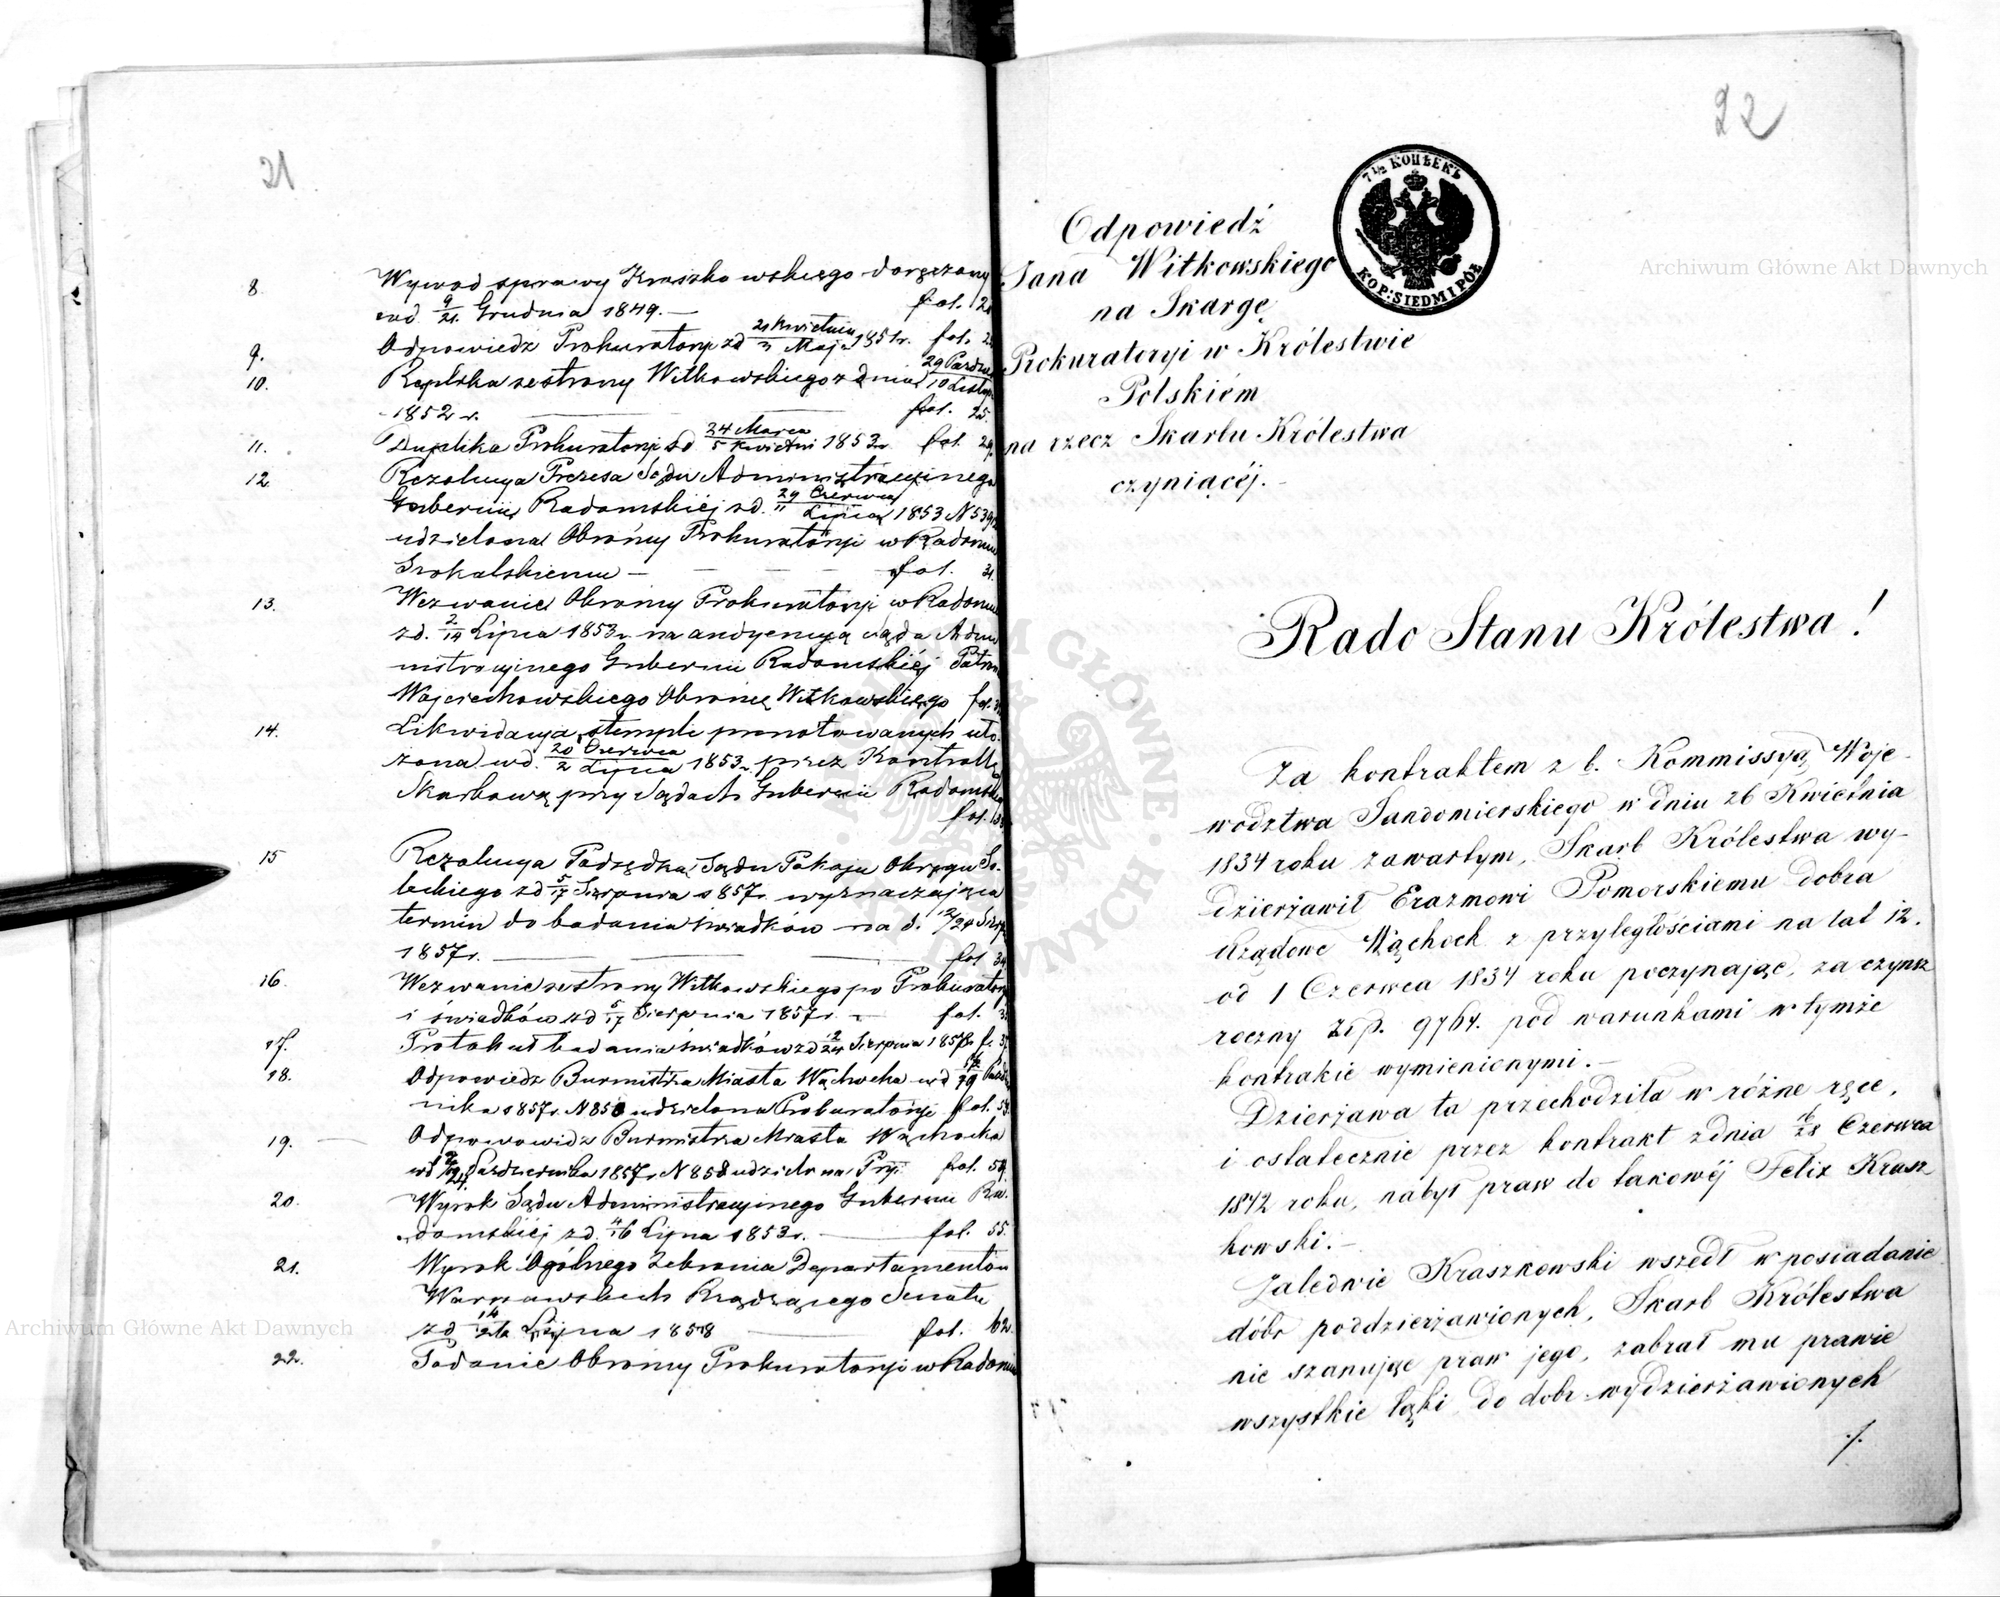 21
8. Wywod sprawy Kraszkowskiego doręczony
w d. 9/21. Grudnia 1849. — fol.
9. Odpowiedz Prokuratoryi z d. 21 Kwietnia/3 Maja 1851 r. fol.
10. Replika ze strony Witkowskiego z dnia 29 Paźdz/10 Listop.
1852 r. — fol. 25.
11. Duplika Prokuratoryi z d. 24 Marca/5 Kwietni 1853 r. fol.
12. Rezolucya Prezesa Sądu Administracyinego
Gubernii Radomskiéj z d. 29 Czerwca/11 Lipca 1853 N
udzielona Obrońcy Prokuratoryi w Radomiu
fol. 31.
13. Wezwanie Obrońcy Prokuratoryi w Radomiu
z d. 2/14 Lipca 1853 r. na audyencyą sądu Admi
nistracyinego Gubernii Radomskiéj Patron
Wojciechowskiego Obrońcę Witkowskiego fol.
14. Likwidacya stempli prenotowanych uło-
żona w d. 20 Czerwca/2 Lipca 1853 r. przez Kontrollę
Skarbową przy Sądach Gubernii Radomski
fol.
15 Rezolucya Podsędka Sądu Pokoju Okręgu So-
leckiego z d. 5/17 Sierpnia 1857 r. wyznaczająca
termin do badania świadków na d. 12/24 Sierp
1857 r. — fol
16. Wezwanie ze strony Witkowskiego po Prokuratory
i świadków z d. 5/17 Sierpnia 1857 r. — fol.
17. Protokuł badania świadków z d. 12/24 Sierpnia 1857 r. f.
18. Odpowiedz Burmistrza Miasta Wąchocka w d.
nika 1857 r. N 858 udzielona Prokuratoryi fol.
19. Odpowiedz Burmistrza Miasta Wąchocka
Październka 1857 r. N 858 udzielona fol.
20. Wyrok Sądu Administracyjnego Gubernii Ra-
domskiéj z d. 4/16 Lipca 1853 r. — fol. 55.
21. Wyrok Ogólnego Zebrania Departamentów
Warszawskich Rządzącego Senatu
z d. Lipca 1858 — fol. 62.
22. Podanie Obrońcy Prokuratoryi w Radomiu
22
7 1/2 КОПѢЕКЪ
KOP: SIEDM I PÓŁ
Odpowiedź
Jana Witkowskiego
na Skargę
Prokuratoryi w Królestwie
Polskiém
na rzecz Skarbu Królestwa
czyniącéj. -
Rado Stanu Królestwa!
Za kontraktem z b. Kommissyą Woje-
wództwa Sandomierskiego w dniu 26 Kwietnia
1834 roku zawartym, Skarb Królestwa wy-
dzierżawił Erazmowi Pomorskiemu dobra
Rządowe Wąchock z przyległościami na lat 12.
od 1 Czerwca 1834 roku poczynając, za czynsz
roczny Złp. 9764. pod warunkami w tymże
kontrakcie wymienionymi. —
Dzierżawa ta przechodziła w różne ręce,
i ostatecznie przez kontrakt z dnia 16/28 Czerwca
1842 roku, nabył praw do takowéj Felix Krasz
kowski. —
Zaledwie Kraszkowski wszedł w posiadanie
dóbr poddzierżawionych, Skarb Królestwa
nie szanując praw jego, zabrał mu prawie
wszystkie łąki do dobr wydzierżawionych
./.
Archiwum Główne Akt Dawnych
Archiwum Główne Akt Dawnych